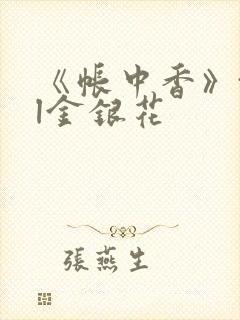 《帐中香》
l金银花
張燕生